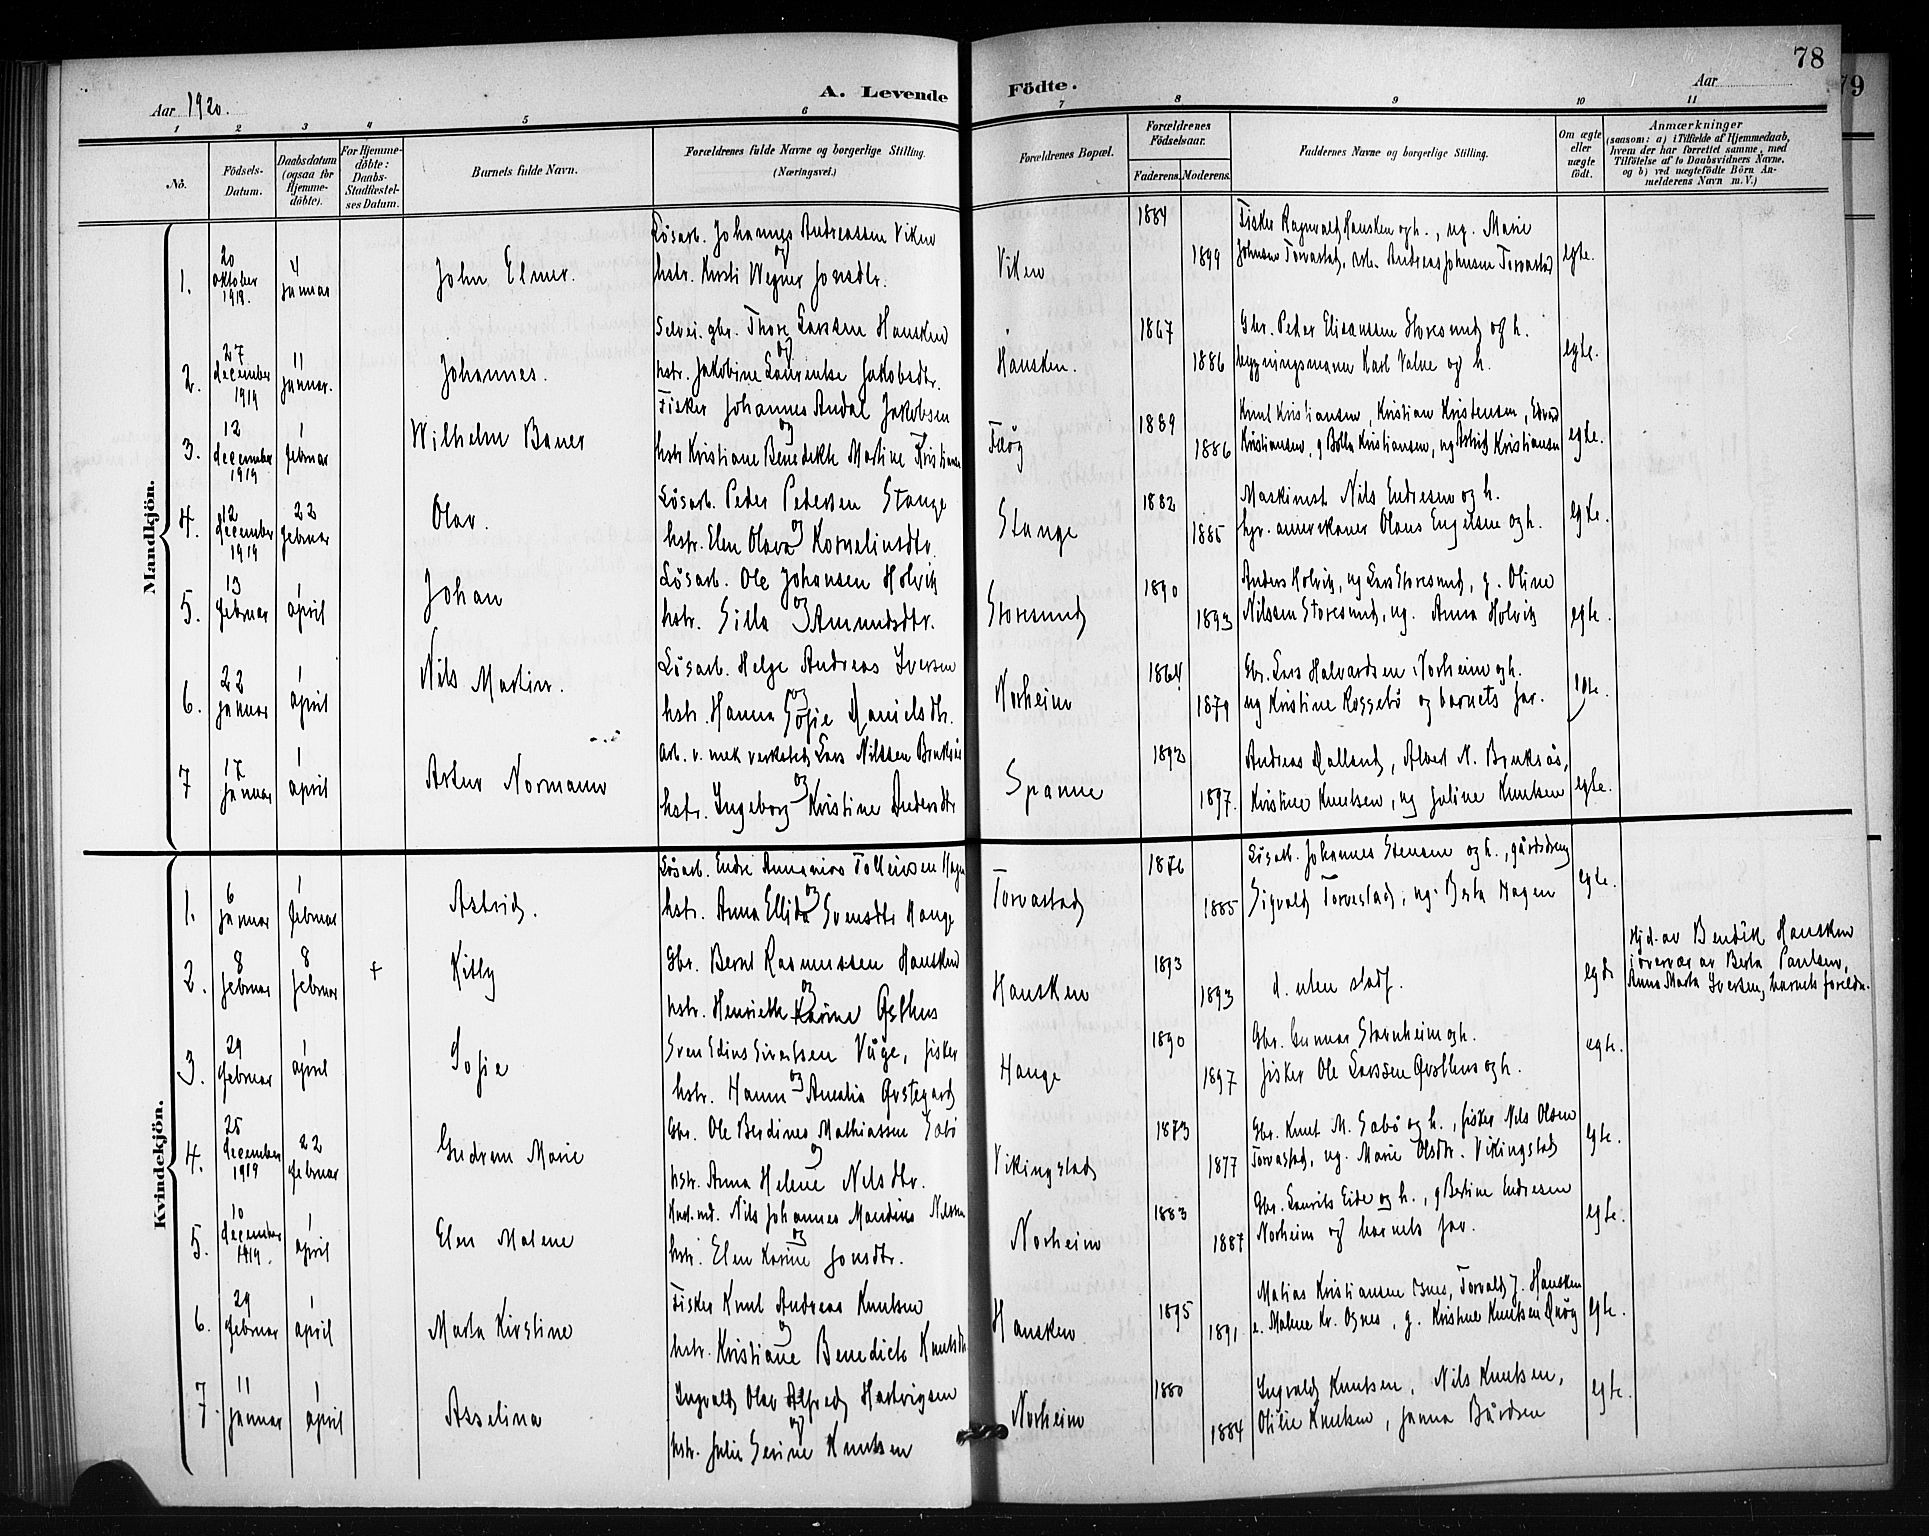 78
79
Aar 1920.
A. Levende Födte.
Aar
1 2 3 4 5 6 7 8 9 10 11
No.
Födsels-Datum.
Daabsdatum (ogsaa for Hjemme-döbte).
For Hjemme-döbte: Daabs-Stadfæstel-ses Datum.
Barnets fulde Navn.
Forældrenes fulde Navne og borgerlige Stilling. (Næringsvei.)
Forældrenes Bopæl.
Forældrenes Födselsaar.
Faderens. Moderens.
Faddernes Navne og borgerlige Stilling.
Om ægte eller uægte födt.
Anmærkninger
(saasom: a) i Tilfælde af Hjemmedaab, hvem der har forrettet samme, med Tilföielse af to Daabsvidners Navne. og b) ved uægtefödte Börn An-melderens Navn m. V.)
Mandkjön.
1. 20 oktober 1919. 4 januar John Elmer. Lösarb. Johannes Andreassen Viken og
hstr. Kirsti Wegner Jonsdtr. Viken 1884 1899 Fisker Ragnvald Hausken og h., ug. Marie
Johnsen Torvastad, Andreas Johnsen Torvastad egte.
2. 27 december 1919 11 januar. Johannes. Selvei. gbr. Thore Larsen Hausken og
hstr. Jakobine Laurentse Jakobsdtr. Hausken. 1867 1886 Gbr. Peder Elisenssen Storesund og h.
bygningsmann Karl Valne og h. egte.
3. 12 december 1919 1 februar Wilhelm Bauer Fisker Johannes Andal Jakobsen og
hstr Kristiane Benedikte Martine Kristianse Feöy 1889 1886 Knut Kristiansen, Kristian Kristensen, Edvard
Kristiansen, g Bolla Kristiansen, ug Astrid Kristiansen egte.
4. 12 december 1919 22 februar Olav. Lösarb. Peder Pedersen Stange og
hstr. Elen Olava Korneliusdtr. Stange 1882 1885 Maskinist Nils Endresen og h.
hgr. amerikaner Olaus Engelsen og h. egte.
5. 13 februar 1 april Johan Lösarb. Ole Johansen Holvik og
hstr. Silla Amundsdtr. Storesund 1890 1893 Anders Holvik, ug Lars Storesund, g. Oline
Nilssen Storesund, ug. Anna Holvik egte.
6. 22 januar 1 april Nils Martin. Lösarb. Helge Andreas Iversen og
hstr. Hanna Sofie Danielsdtr. Norheim 1864 1879 Gbr. Lars Halvardsen Norheim og h.
ug Kristine Rossebö og barnets far. egte.
7 17 januar 1 april Artur Normann Arb. v. mek verksted Lars Nilssen Bruksös og
hstr. Ingeborg Kristine Andersdtr Spanne 1892 1897. Andreas Dalland, Albert N. Bruksös,
Kristine Knutsen, ug Jaline Knutsen egte.
Kvindekjön.
1. 6 januar 1 februar Astrid. Lösarb. Endre Annanias Tolleivsen Hagen og
hstr. Anna Ellida Svensdtr Hauge Torvastad 1876 1885 Lösarb. Johannes Stensen og h., gårdsdreng
Sigvald Torvestad, ug. Berta Hagen egte.
2. 8 februar 8 februar + Kitty Gbr. Bernt Rasmussen Hausken og
hstr. Henriette Karine Østhus Hausken 1893 1893 d. uten stadf. egte
Hjd. av Bendik Hausken
i overvær av Berta Paulsen,
Anna Marta Iversen, barnets foreldre.
3. 29 februar 1 april Sofie Sven Edins Sivertsen Våge, fisker og
hstr. Hanna Amalia Øvstegard Hauge 1890 1897 Gbr. Gunnar Stornheim og h.
fisker Ole Larssen Østhus og h. egte.
4. 25 december 1919 22 februar Gudrun Marie Gbr. Ole Berdines Mathiassen Sabö og
hstr. Anna Helene Nelsdtr. Vikingstad 1873 1877 Gbr. Knut M. Sabö og h., fisker Nels Olsen
Torvastad, ug. Marie Olsdtr. Vikingstad egte.
5. 10 december 1919. 1 april Elen Malene Nils Johannes Mandius Nilssen og
hstr. Elen Karine Jonsdtr. Norheim 1883 1887 Gbr. Laurits Eide og h., g Bertine Endresen
Norheim og barnets far. egte.
6. 29 februar 1 april Marta Kirstine Fisker Knut Andreas Knutsen og
hstr. Kristiane Benedicte Knutsdtr Hausken 1895 1891 Matias Kristiansen Osnes, Torvald J. Hausken
e. Malene Kr. Osnes, g. Kristine Knutsen egte.
7. 11 januar 1 april Asselina Ingvald Olav Alfred Hartvigsen og
hstr. Julie Serine Knutsen Norheim 1880 1884 Ingvald Knutsen, Nils Knutsen,
Otilie Knutsen, Janna Bårdsen egte.